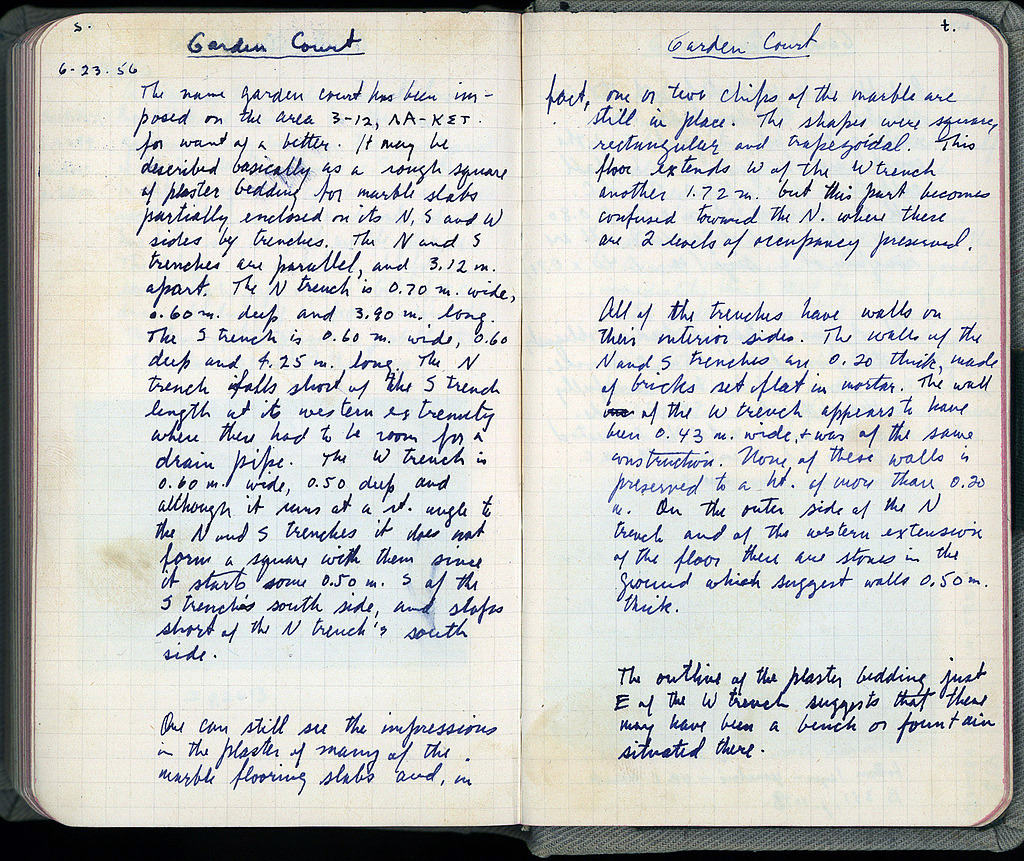 s.
Garden Court
6-23.56
The name garden court has been im-
posed on the area 3-12, ΛA-ΚΣΤ.
for want of a better. It may be
described basically as a rough square
of plaster bedding for marble slabs
partially enclosed on its N, S and W
sides by trenches. The N and S
trenches are parallel, and 3.12 m.
apart. The N trench is 0.70 m. wide,
0.60 m. deep and 3.90 m. long.
The S trench is 0.60 m. wide, 0.60
deep and 4.25 m. long. The N
trench falls short of the S trench
length at its western extremity
where there had to be room for a
drain pipe. The W trench is
0.60 m. wide, 0.50 deep and
although it runs at a rt. angle to
the N and S trenches it does not
form a square with them since
it starts some 0.50 m. S of the
S trench's south side, and stops
short of the N trench's south
side.
One can still see the impressions
in the plaster of many of the
marble flooring slabs and, in
t.
Garden Court
fact, one or two chips of the marble are
still in place. The shapes were square,
rectangular and trapezoidal. This
floor extends W of the W trench
another 1.72 m. but this part becomes
confused toward the N. where there
are 2 levels of occupancy preserved.
All of the trenches have walls on
their interior sides. The walls of the
N and S trenches are 0.20 thick, made
of bricks set flat in mortar. The wall
of the W trench appears to have
been 0.43 m. wide, + was of the same
construction. None of these walls is
preserved to a ht. of more than 0.20
m. On the outer side of the N
trench and of the western extension
of the floor there are stones in the
ground which suggest walls 0.50 m.
thick.
The outline of the plaster bedding just
E of the W trench suggests that there
may have been a bench or fountain
situated there.